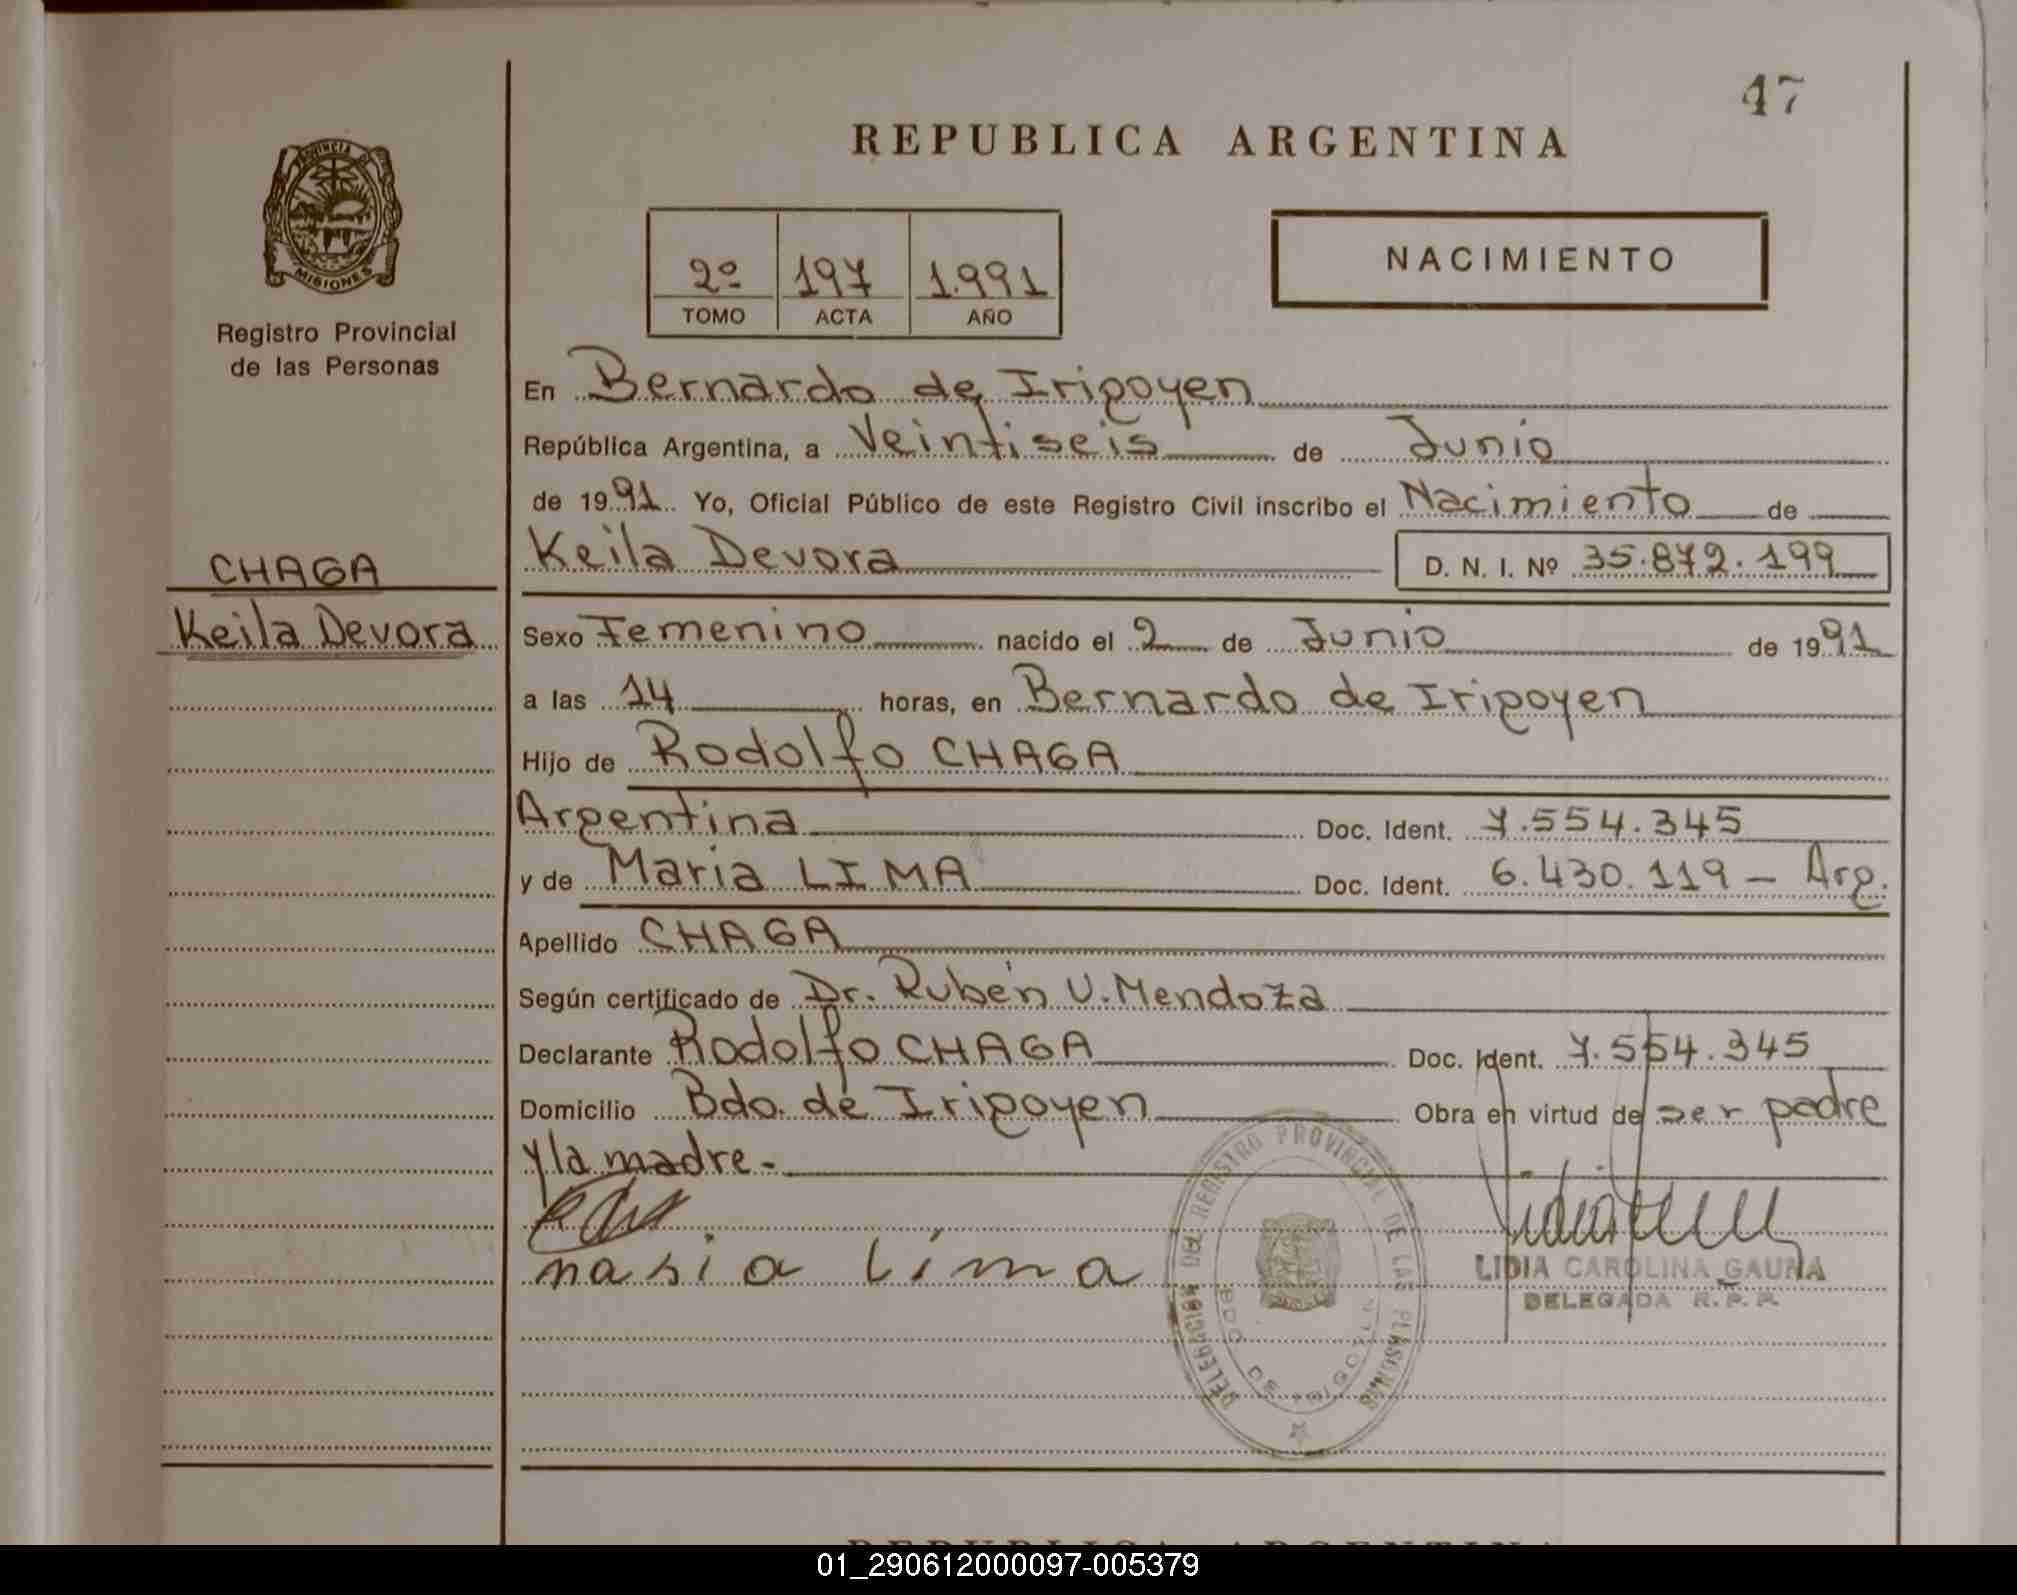 47
REPUBLICA ARGENTINA
PROVINCIA DE
MISIONES
Registro Provincial
de las Personas
2º 197 1.991
TOMO ACTA AÑO
NACIMIENTO
En Bernardo de Irigoyen
República Argentina, a Veintiseis de Junio
de 1991 Yo, Oficial Público de este Registro Civil inscribo el Nacimiento de
CHAGA
Keila Devora
Keila Devora D. N. I. Nº 35.872.199
Sexo Femenino nacido el 2 de Junio de 1991
a las 14 horas, en Bernardo de Irigoyen
Hijo de Rodolfo CHAGA
Argentina Doc. Ident. 7.554.345
y de Maria LIMA Doc. Ident. 6.430.119 - Arg.
Apellido CHAGA
Según certificado de Dr. Rubén U. Mendoza
Declarante Rodolfo CHAGA Doc. Ident. 7.554.345
Domicilio Bdo. de Irigoyen Obra en virtud de ser padre
y la madre -
masia Lima
DELEGACION DEL REGISTRO PROVINCIAL DE LAS PERSONAS
BDO DE IRIGOYEN
LIDIA CAROLINA GAUNA
DELEGADA R. P. P.
REPUBLICA ARGENTINA
01_290612000097-005379